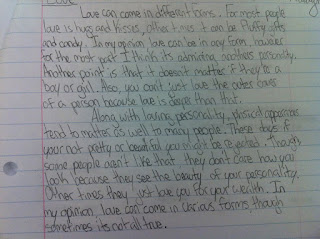 Love
Love can come in different forms. For most people
love is hugs and kisses, other times it can be fluffy gifts
and candy. In my opinion love can be in any form, however
for the most part I think its admiring anothers personality.
Another point is that it doesnt matter if they're a
boy or girl. Also, you cant just love the outer
of a person because love is deeper than that.
Along with loving personality, physical appearances
tend to matter as well to many people. These days if
your not pretty or beautiful you might be rejected. Though
some people aren't like that they don't care how you
look because they see the beauty of your personality.
Other times they just love you for your wealth. In
my opinion, love can come in various forms though
sometimes its not all true.